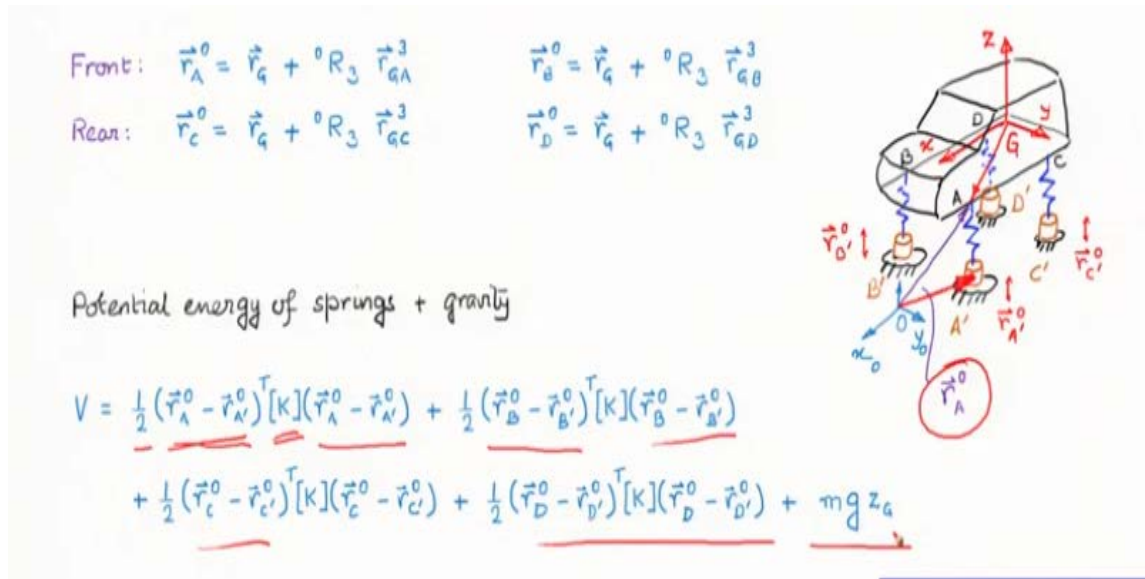 Front: r⃗_A^0 = r⃗_G + ^0R_3 r⃗_GA^3 r⃗_B^0 = r⃗_G + ^0R_3 r⃗_GB^3
Rear: r⃗_C^0 = r⃗_G + ^0R_3 r⃗_GC^3 r⃗_D^0 = r⃗_G + ^0R_3 r⃗_GD^3
Potential energy of springs + gravity
V = ½ (r⃗_A^0 − r⃗_A'^0)^T [K] (r⃗_A^0 − r⃗_A'^0) + ½ (r⃗_B^0 − r⃗_B'^0)^T [K] (r⃗_B^0 − r⃗_B'^0)
+ ½ (r⃗_C^0 − r⃗_C'^0)^T [K] (r⃗_C^0 − r⃗_C'^0) + ½ (r⃗_D^0 − r⃗_D'^0)^T [K] (r⃗_D^0 − r⃗_D'^0) + mg z_G
z
y
x
G
D
B
C
A
D'
r⃗_B'^0
r⃗_C'^0
B'
C'
O
A'
r⃗_A'^0
x_0
y_0
r⃗_A^0